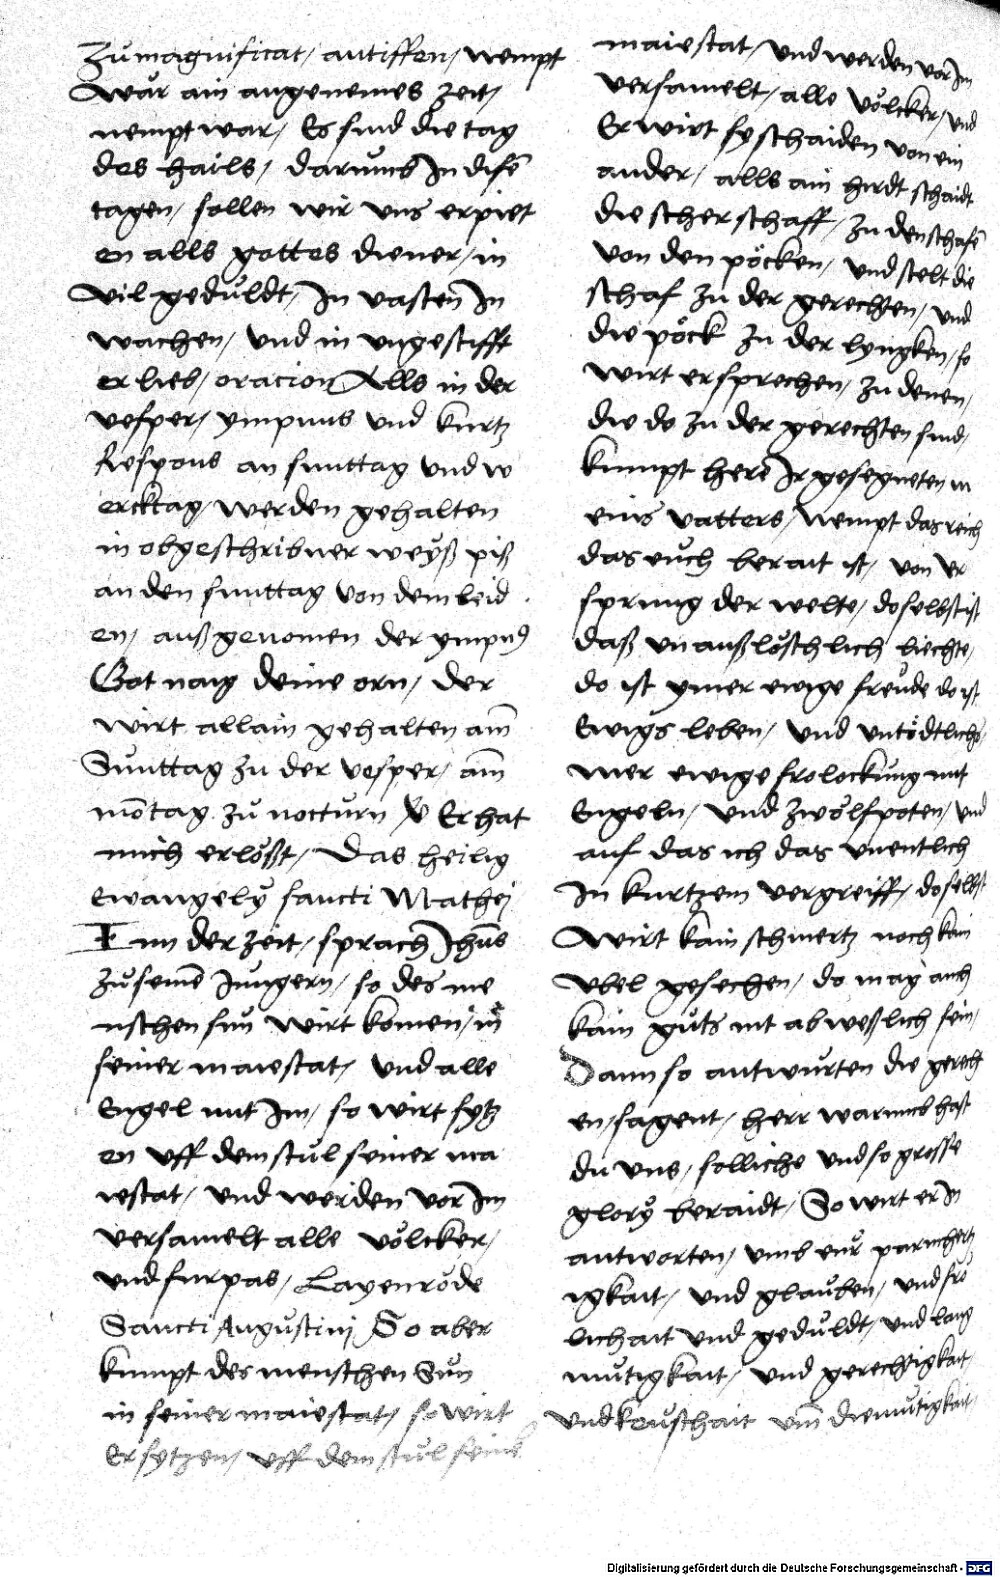 Zůmagnificat/ antiffen/ nempt
war ain angenemes zeit/
nempt war/ Es sind die tag
des hails/ darumb In disē
tagen/ sollen wir uns erpiet
en alls gottes diener/ in
vil gedůldt/ In vasten In
wachen/ und in ungestifft
er lieb/ oracion Alls in der
vesper/ ympnus und kurtz
Respons an sunttag und w
ercktag/ werden gehalten
in obgeschribner weyß piß
an den sunttag von dem leid
en/ außgenomen der ympn9
Got naig deine orn/ der
wirt allain gehalten am̄
Sunttag zu der vesper/ am̄
mōtag zů nocturn Er hat
mich erlößt/ Das heilig
ewangely sancti Mathej
In der zeit/ sprach Ihūs
zů seinē Jungern/ so des me
nschen sun wirt komen/ in
seiner maiestat/ und alle
Engel mit Im/ so wirt sytz
en uff dem stůl seiner ma
iestat/ und werden vor Im
versamelt alle völcker/
und furpas/ Layenröde
Sancti Augustinj So aber
kumpt des menschen Sůn
in seiner maiestat/ so wirt
Er sytzen/ uff dem stůl seiner
maiestat/ und werden vor Im
versamelt/ alle völcker/ und
Er wirt sy schaiden von ein
ander/ alls ain hirdt schaidt
die scher schaff/ zu den schafē
von den pöcken/ und stelt die
schaf zu der gerechten/ und
die pöck zu der lyngken/ so
wirt er sprechen/ zu denen/
die do zu der gerechten sind/
kumpt herē Ir gesegneten m
eins vatters/ Nempt das reich
das euch berait ist/ von Ur
sprung der welte/ doselbst ist
daß unaußlöschlich liechte/
do ist ymer ewige freude do ist
Ewigs leben/ und untödtlichs
mer ewige frolockung mit
Engeln/ und zwölfpoten/ und
auf das ich das unentlich
In kurtzem vergreiff/ doselbst
Wirt kain schmertz noch kain
Ubel gesechen/ do mag auch
kain gůts nit abweßlich sein/
Dann so antwurten die gerech
en/ sagent/ herr warumb hast
du uns/ solliche und so grosse
glory beraidt/ So wirt er In
antworten/ umb eur parmhertz
igkait/ und glauben/ und frö
lichait und gedůldt/ und lang
mutigkait/ und gerechtigkait/
und keuschait um̄ diemutigkait/
Digitalisierung gefördert durch die Deutsche Forschungsgemeinschaft - DFG